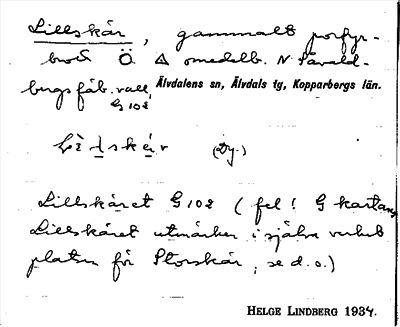 Lillskär, gammalt porfyr-
brott Ö. Δ omedelb. N Åsvald-
bergs fäb. vall,
G 108
Älvdalens sn, Älvdals tg, Kopparbergs län.
(Dy.)
Lillskäret G 108 (fel! G kartans
Lillskäret utmärker i själva verket
platsen för Storskär, se d. o.)
HELGE LINDBERG 1934.